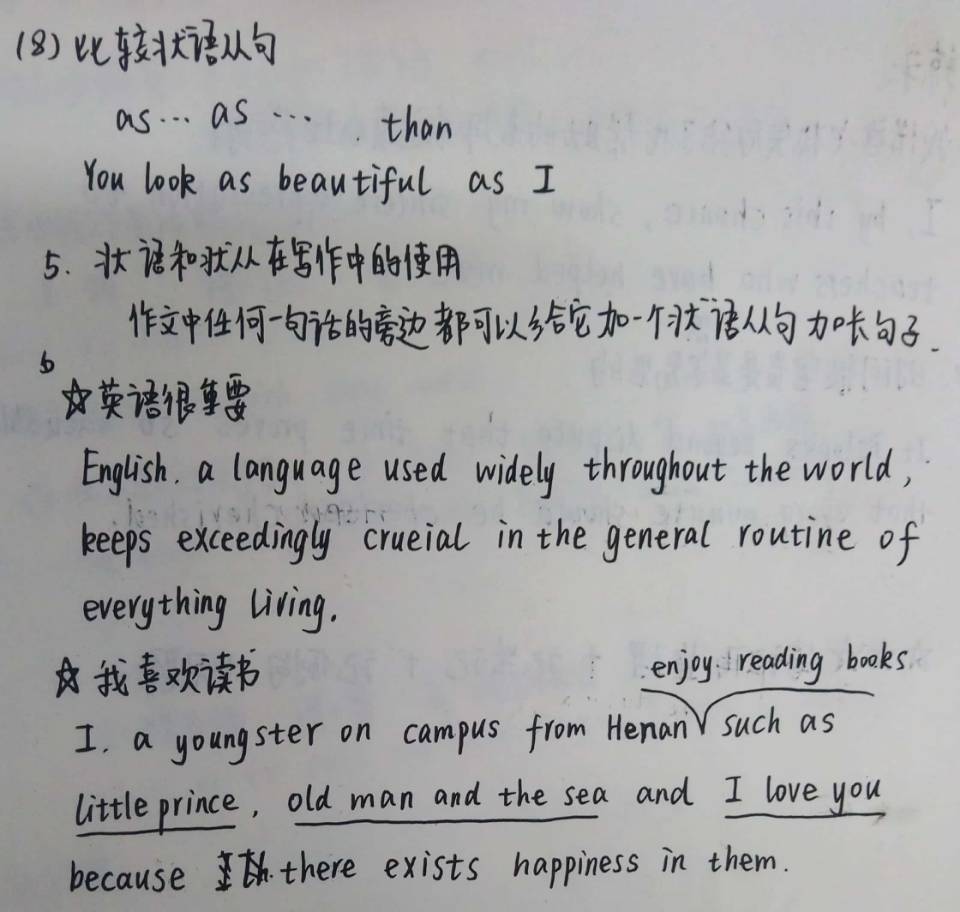 (8) 比较状语从句
as… as … than
You look as beautiful as I
5. 状语和状从在写作中的使用
作文中任何一句话的旁边都可以给它加一个状语从句加长句子.
☆英语很重要
English. a language used widely throughout the world,
keeps exceedingly crueial in the general routine of
everything living.
☆ 我喜欢读书
enjoy reading books
I. a youngster on campus from Henan √ such as
little prince, old man and the sea and I love you
because there exists happiness in them.